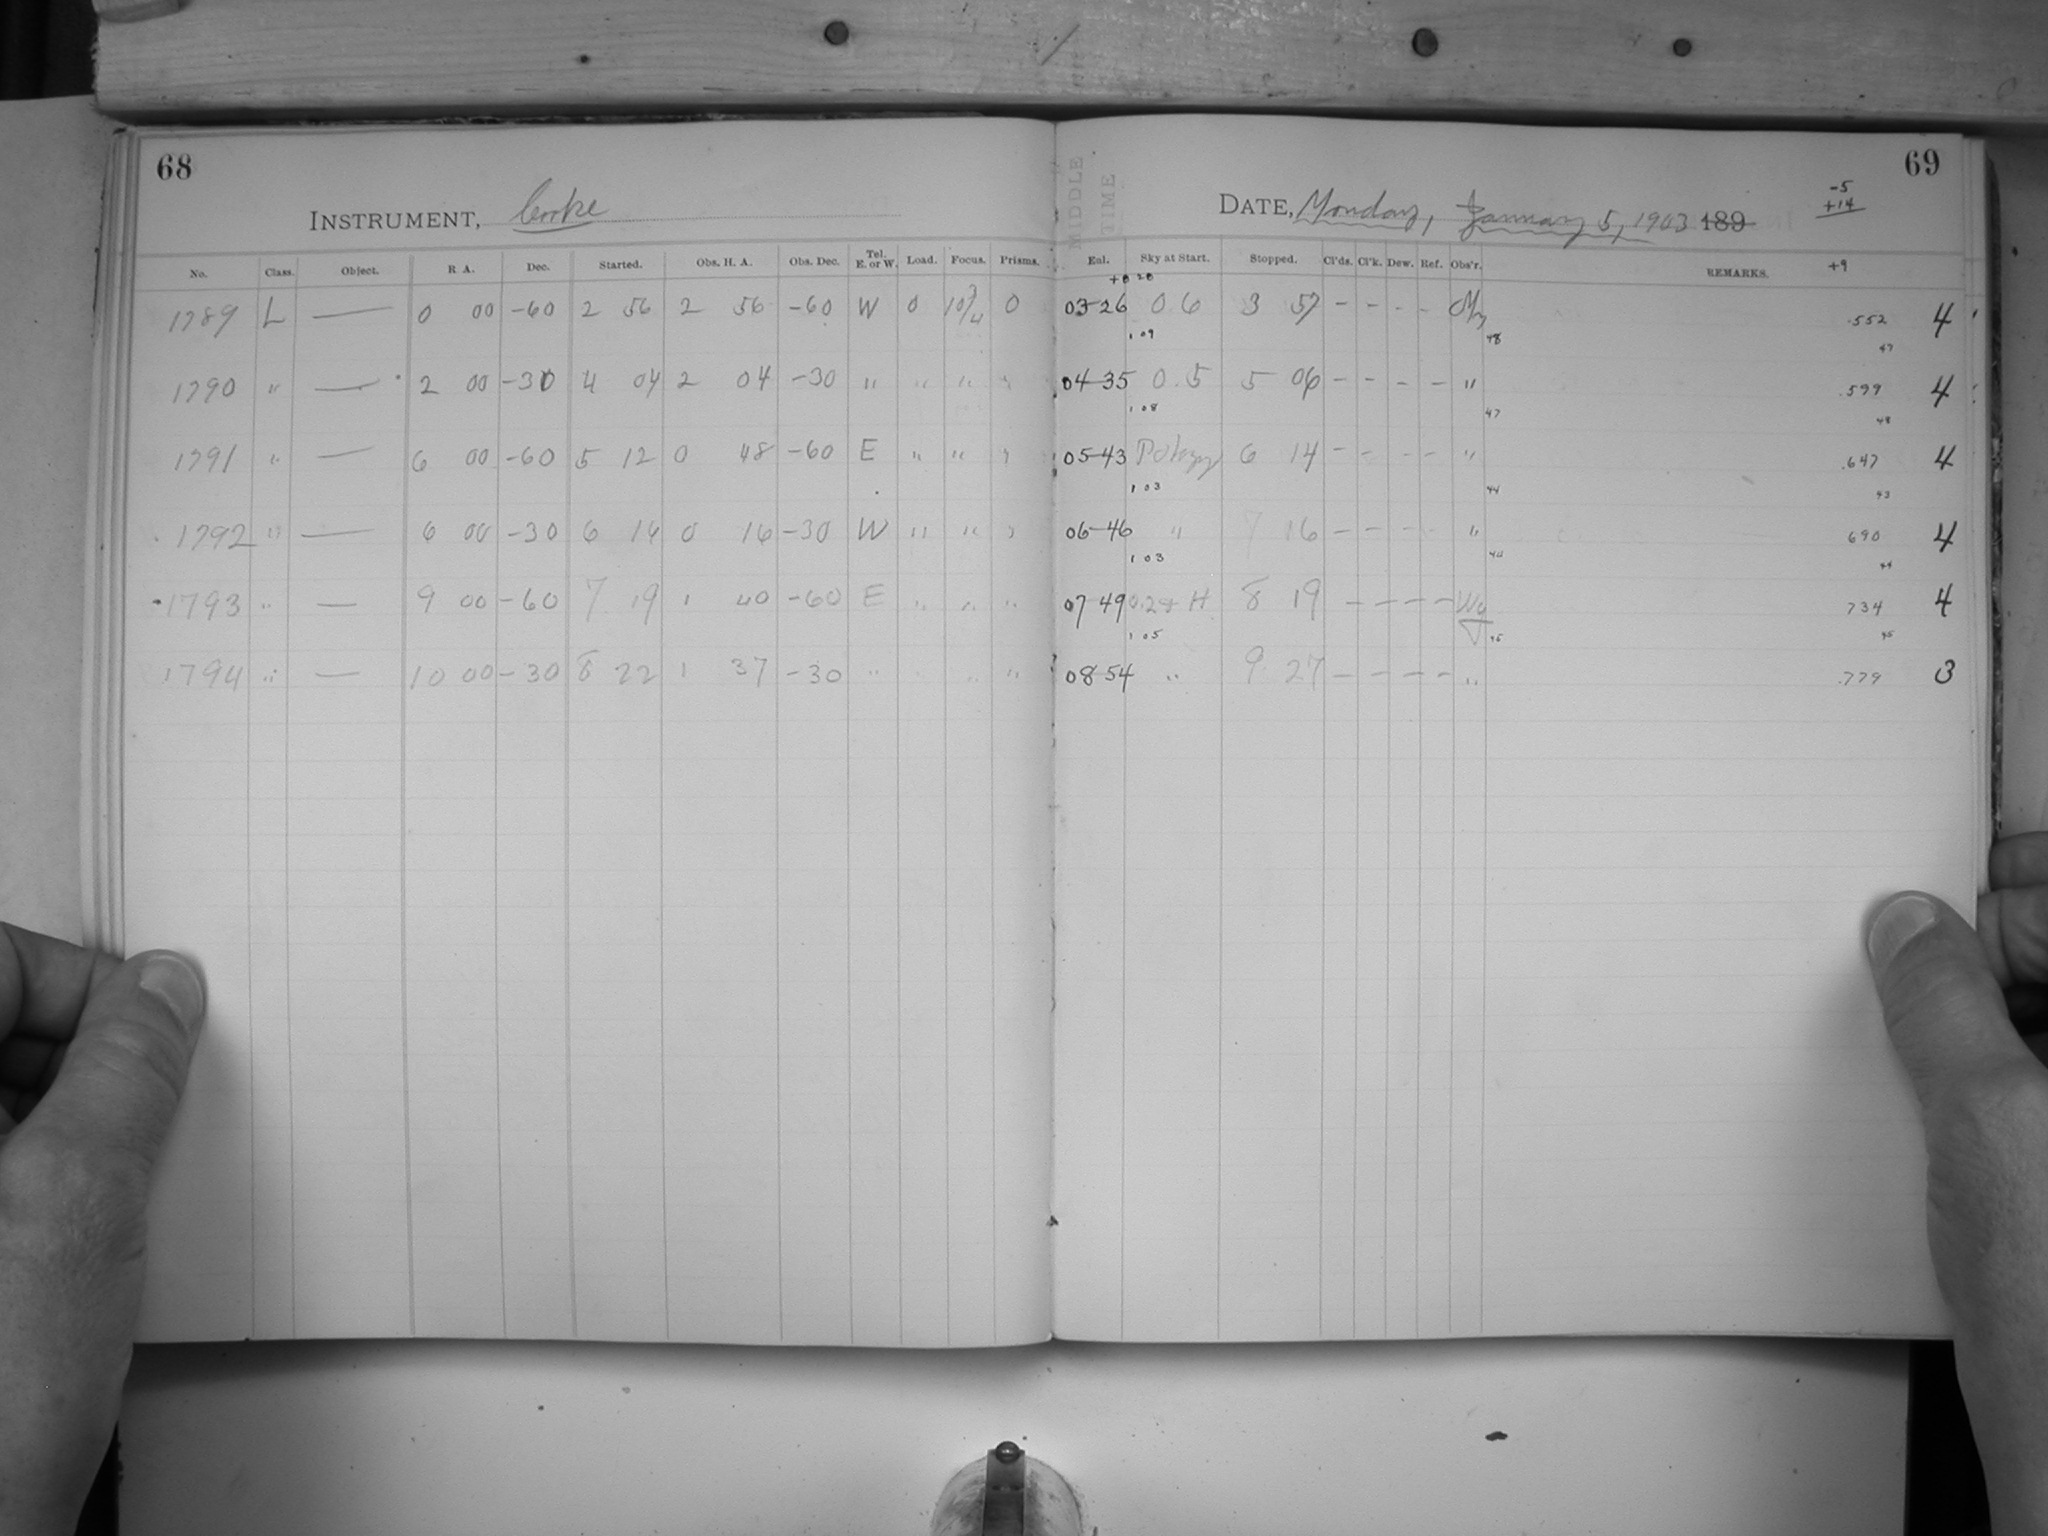 68
INSTRUMENT, Cooke
No. Class. Object. R. A. Dec. Started. Obs. H. A. Obs. Dec. Tel. E. or W. Load. Focus. Prisms.
1789 L — 0 00 -60 2 56 2 56 -60 W 0 10 3/4 0
1790 " — 2 00 -30 4 04 2 04 -30 " " " "
1791 " — 6 00 -60 5 12 0 48 -60 E " " "
1792 " — 6 00 -30 6 16 0 16 -30 W " " "
1793 " — 9 00 -60 7 19 1 40 -60 E " " "
1794 " — 10 00 -30 8 22 1 37 -30 " " " "
69
MIDDLE
TIME
-5
+14
DATE, Monday, January 5, 1903 189
+9
Eal. Sky at Start. Stopped. Cl'ds. Cl'k. Dew. Ref. Obs'r. REMARKS.
03-26 0.6 3 57 - - - - .552 4
1 09 48 47
04-35 0.5 5 06 - - - - " .599 4
1 08 47 48
05-43 6 14 - - - - " .647 4
1 03 44 43
06-46 " 7 16 - - - - " 690 4
1 03 44
07-49 H 8 19 - - - - Wy 734 4
1 05 45 45
08-54 " 9 27 - - - - " .779 3